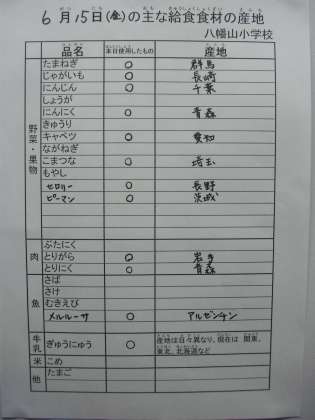 6月15日(金)の主な給食食材の産地
八幡山小学校
品名 本日使用したもの 産地
野菜・果物
たまねぎ ○ 群馬
じゃがいも ○ 長崎
にんじん ○ 千葉
しょうが
にんにく ○ 青森
きゅうり
キャベツ ○ 愛知
ながねぎ
こまつな ○ 埼玉
もやし
セロリー ○ 長野
ピーマン ○ 茨城
肉
ぶたにく
とりがら ○ 岩手
とりにく ○ 青森
魚
さば
さけ
むきえび
メルルーサ ○ アルゼンチン
牛乳 ぎゅうにゅう ○ 産地は日々異なり、現在は 関東、
東北、北海道など
米 こめ
他 たまご